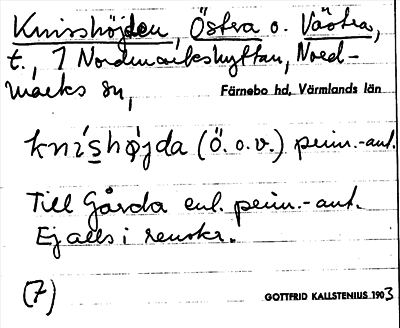 Knisshöjden, Östra o. Västra,
t., 1 Nordmarkshyttan, Nord-
marks sn,
Färnebo hd, Värmlands län
knishøjda (Ö. o. v.) prim.-ant.
Till Gårda enl. prim.-ant.
Ej alls i renskr.
(7)
GOTTFRID KALLSTENIUS 1903